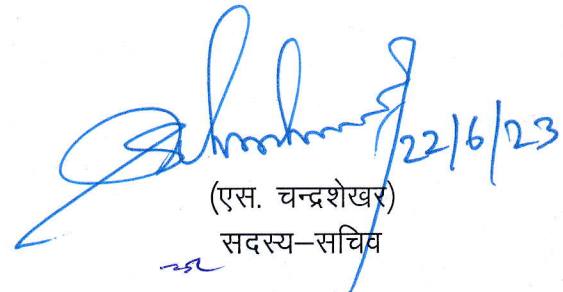 22/6/23
(एस. चन्द्रशेखर)
सदस्य–सचिव